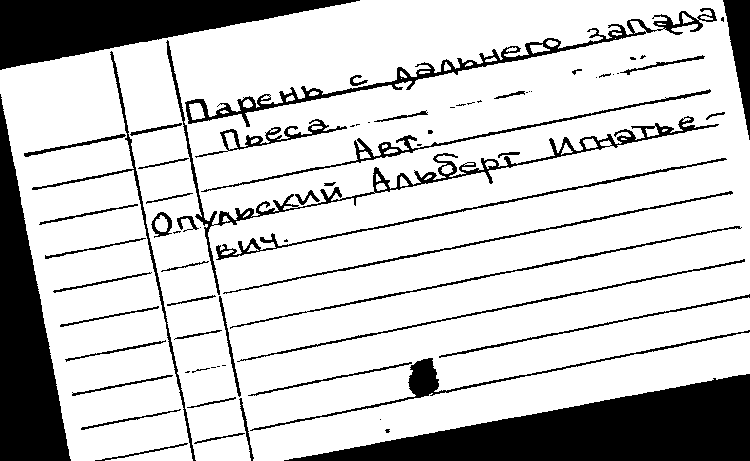 Парень с дальнего запада.
Пьеса.
Авт.:
Опульский, Альберт Игнатье-
вич.